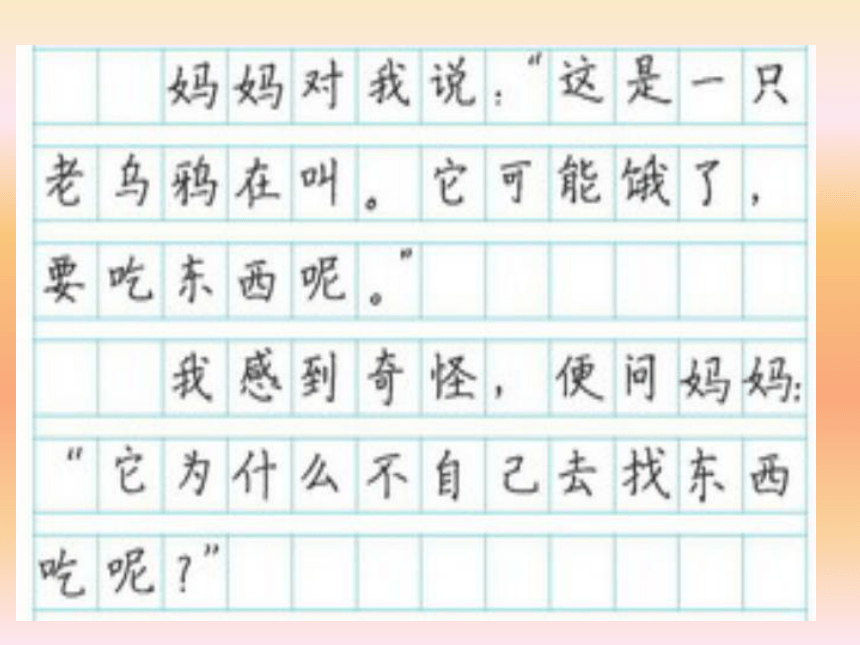 妈妈对我说:“这是一只
老乌鸦在叫。它可能饿了,
要吃东西呢。”
我感到奇怪,便问妈妈:
“它为什么不自己去找东西
吃呢?”